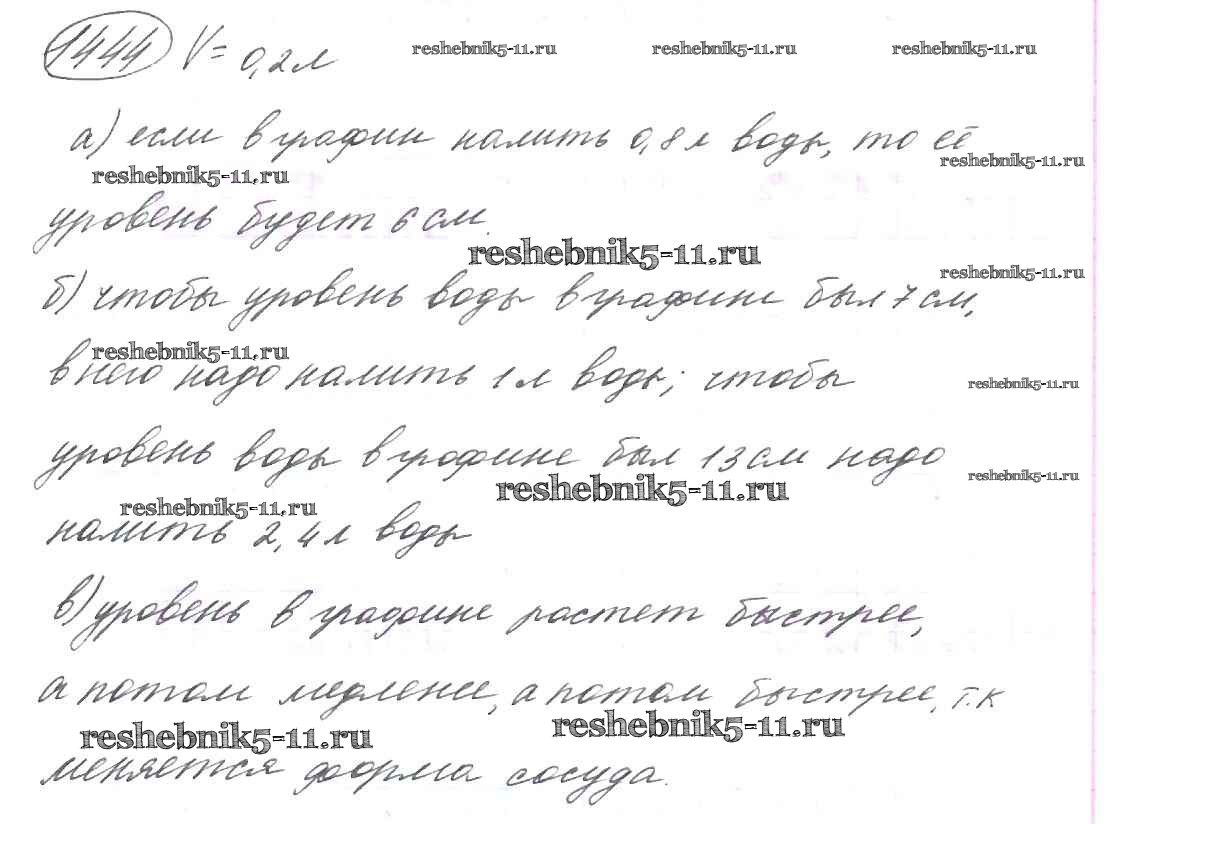 1444 V = 0,2 л
reshebnik5-11.ru reshebnik5-11.ru reshebnik5-11.ru
а) если в графин налить 0,8 л воды, то её
reshebnik5-11.ru reshebnik5-11.ru
уровень будет 6 см.
reshebnik5-11.ru
reshebnik5-11.ru
б) чтобы уровень воды в графине был 7 см,
reshebnik5-11.ru
в него надо налить 1 л воды; чтобы
reshebnik5-11.ru
уровень воды в графине был 13 см надо
reshebnik5-11.ru
reshebnik5-11.ru
reshebnik5-11.ru
налить 2,4 л воды
в) уровень в графине растет быстрее,
а потом медленее, а потом быстрее, т.к
reshebnik5-11.ru reshebnik5-11.ru
меняется форма сосуда.